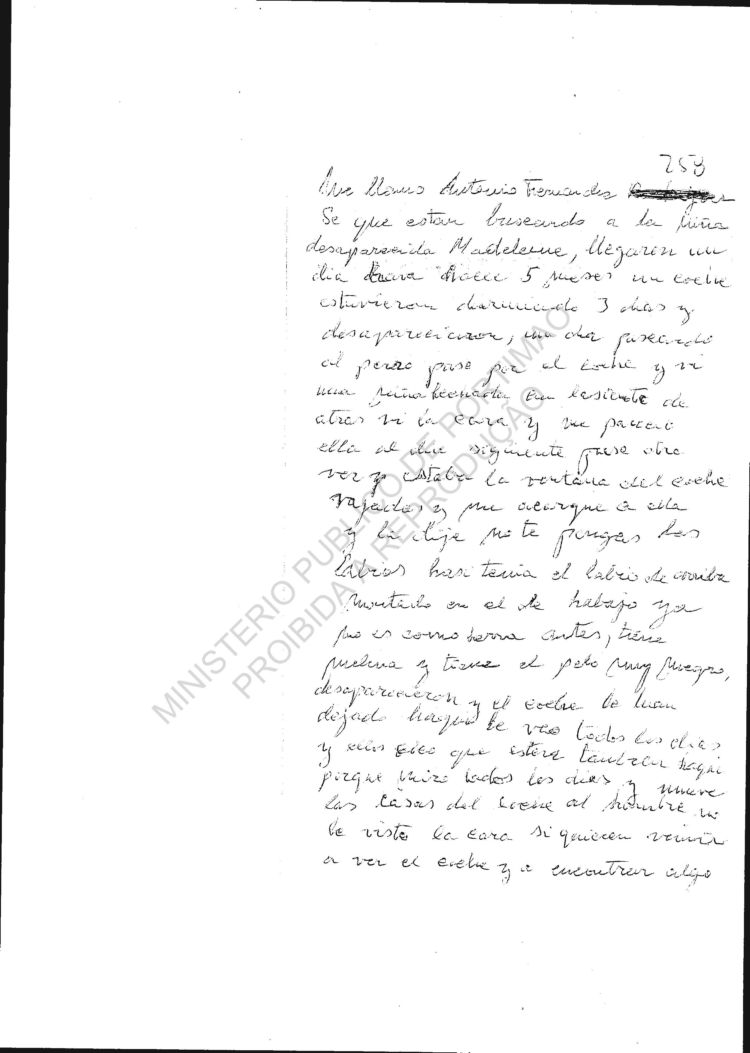 258
Me llamo Antonio Fernandes
Se que estan buscando a la niña
desaparecida Madeleine, llegaron un
dia hace 5 meses un coche
estuvieron durmiendo 3 dias y
desaparecieron, un dia paseando
al perro pase por el coche y vi
una niña en de
atras vi la cara y me parecio
ella al dia siguiente pase otra
vez y estaba la ventana del coche
vajada y me acerque a ella
y la dije no te pongas los
labios hasi tenia el labio de arriba
montado en el de habajo ya
no es como antes, tiene
melena y tiene el pelo muy negro,
desaparecieron y el coche lo han
dejado haqui le veo todos los dias
y ellos creo que estera tambien haqui
porque miro todos los dias y mueve
las casas del coche al hombre no
le visto la cara si quieren venir
a ver el coche y a encontrar algo
MINISTERIO PUBLICO DE PORTIMAO
PROIBIDA A REPRODUÇÃO